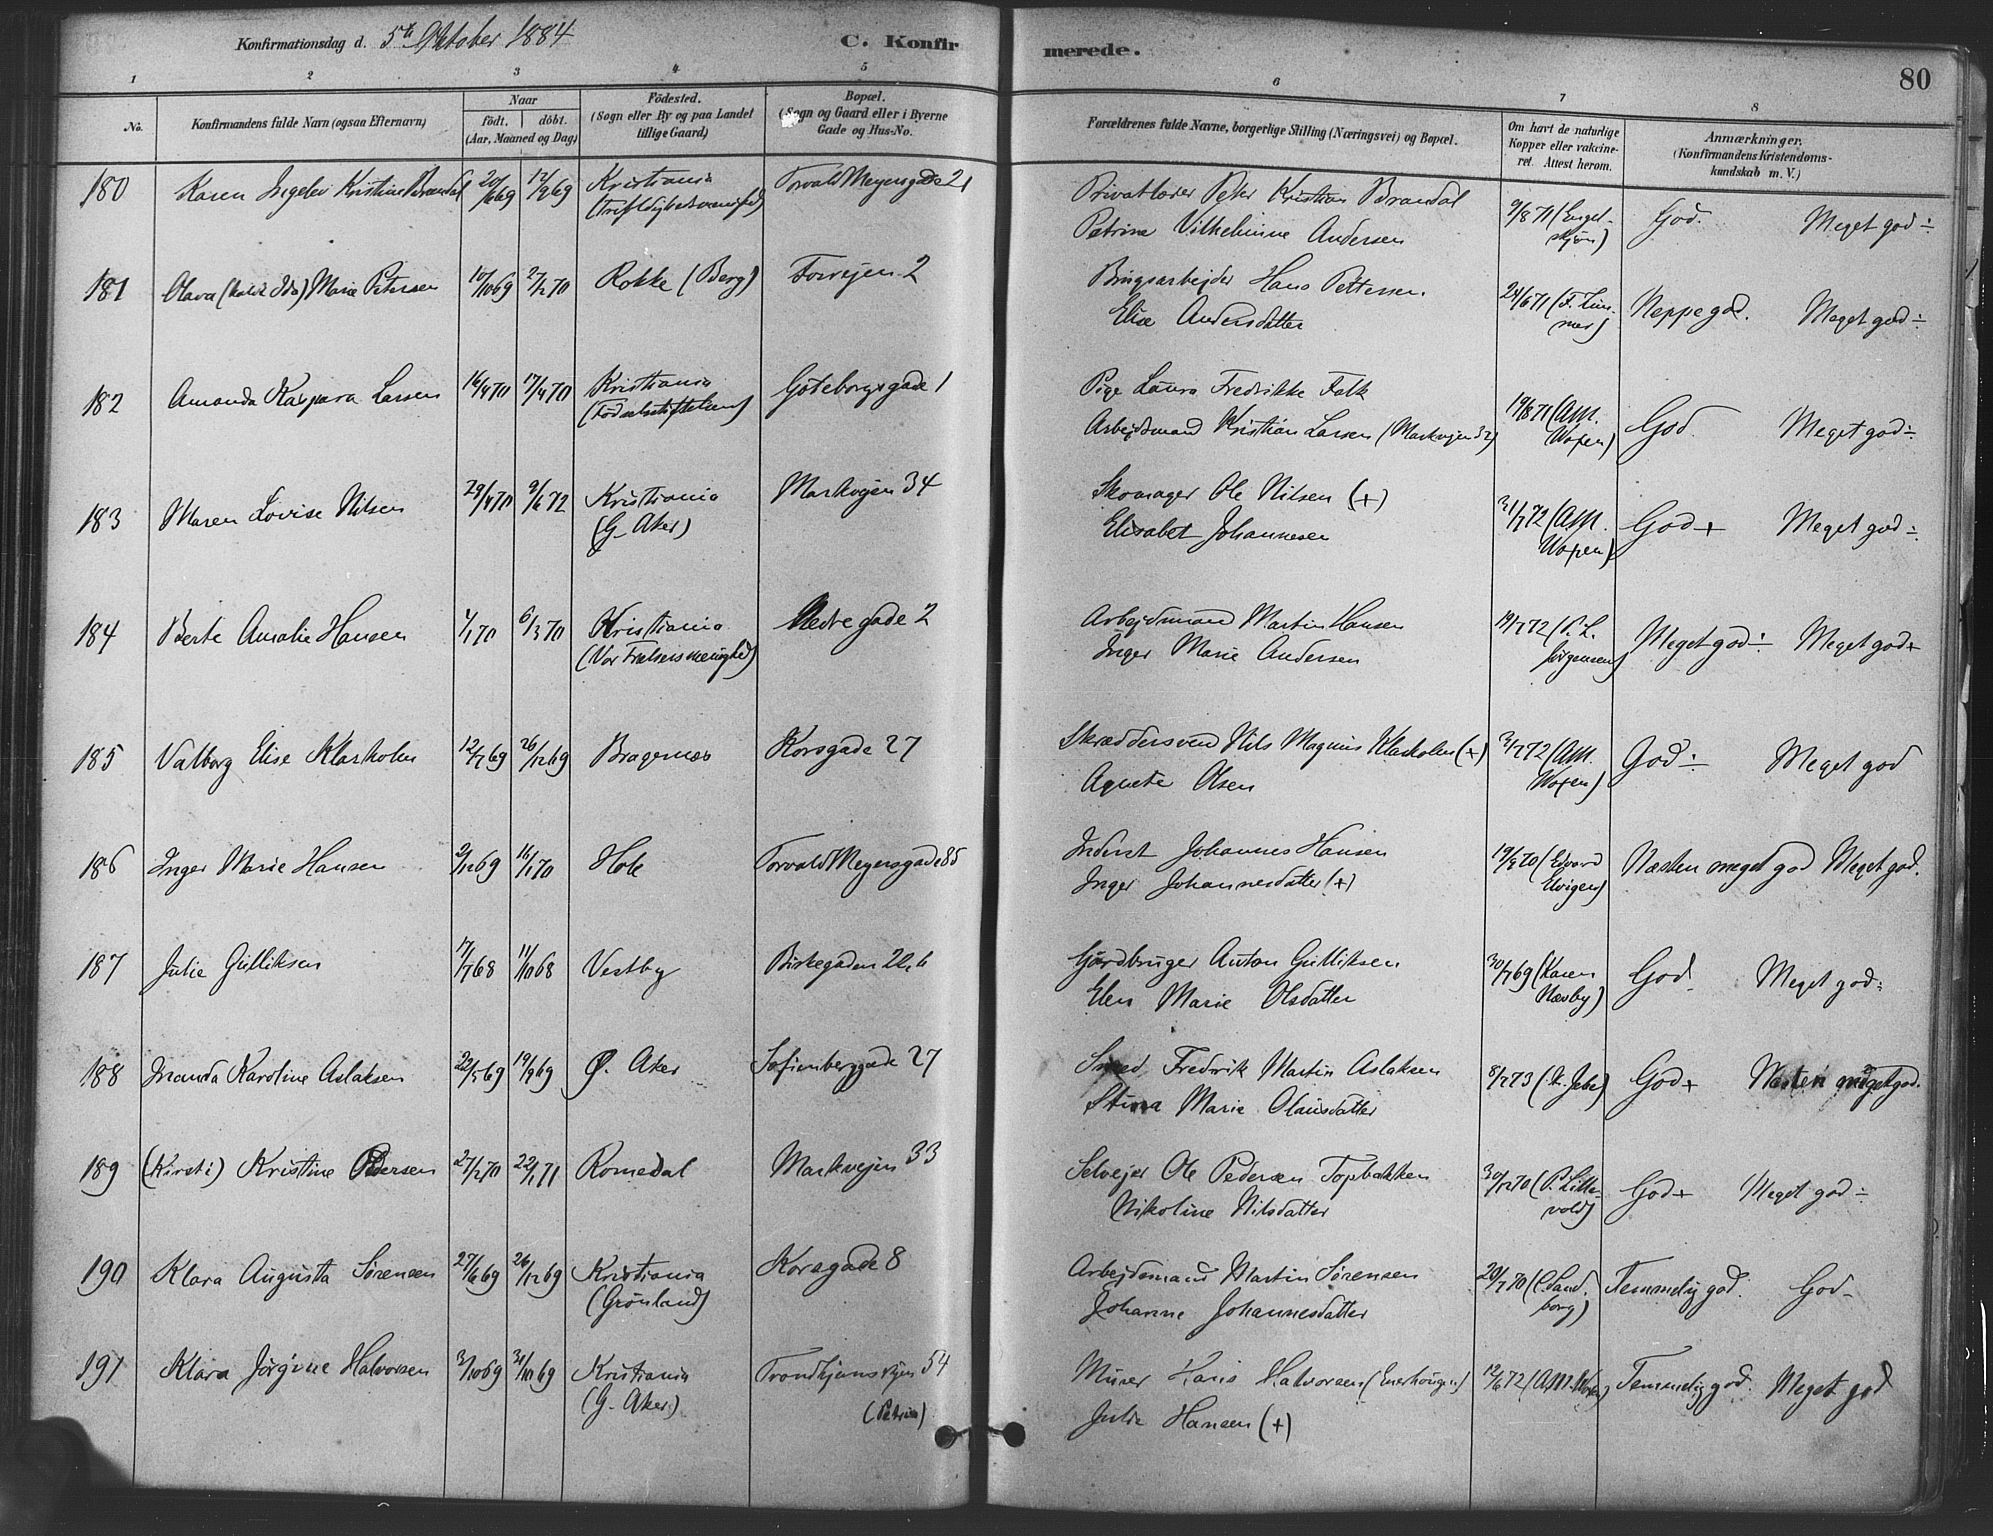 Konfirmationsdag d. 5te Oktober 1884 C. Konfirmerede. 80
1 2 3 4 5 6 7 8
No. Konfirmandens fulde Navn (ogsaa Efternavn) Naar födt. döbt. (Aar, Maaned og Dag) Födested. (Sogn eller By og paa Landet tillige Gaard) Bopæl. (Sogn og Gaard eller i Byerne Gade og Hus-No. Forældrenes fulde Navne, borgerlige Stilling (Næringsvei) og Bopæl. Om havt de naturlige Kopper eller vakcineret. Attest herom. Anmærkninger. (Konfirmandens Kristendomskundskab m. V.)
180 Karen Ingelev Kristine Brandal 20/6 69 12/9 69 Kristiania Torvald Meyersgade 21 Privatlærer Peter Kristian Brandal 9/8 71 (Engelskjøn) God. Meget god ÷
(Trefoldighedsmenighed) Petrine Vilhelmine Andersen
181 Olava (kaldt Ida) Marie Petersen 10/10 69 27/2 70 Rokke (Berg) Forvejen 2 Brugsarbejder Hans Pettersen. 24/6 71 Neppe god. Meget god ÷
Elise Andersdatter
182 Amanda Kaspara Larsen 16/4 70 17/4 70 Kristiania Göteborgsgade 1 Pige Laura Fredrikke Falk 19/8 71 (AM. Woxen) God Meget god ÷
(Födselsstiftelsen) Arbejdsmand Kristian Larsen (Markvejen 32)
183 Maren Lovise Nilsen 29/4 70 9/6 72 Kristiania Markvejen 34 Skomager Ole Nilsen (+) 31/7 72 (AM. Woxen) God + Meget god ÷
(G. Aker) Elisabet Johannesen
184 Berte Amalie Hansen 1/1 70 6/3 70 Kristiania Nedregade 2 Arbejdsmand Martin Hansen 19/7 72 (P. L. Jörgensen) Meget god ÷ Meget god +
(Vor Frelsers menighed) Inger Marie Andersen
185 Valborg Elise Klarholm 12/7 69 26/12 69 Bragernæs Korsgade 27 Skræddersvend Nils Magnus Klarholm (+) 31/7 72 (AM. Woxen) God ÷ Meget god
Agnete Olsen
186 Inger Marie Hansen 2/12 69 16/1 70 Hole Torvald Meyersgade 85 Inderst Johannes Hansen 19/9 70 (Edvard Elvigen) Næsten meget god Meget god.
Inger Johannesdatter (+)
187 Julie Gulliksen 17/7 68 11/10 68 Vestby Birkegaden 22, b Gårdbruger Anton Gulliksen 30/7 69 (Karen Næsby) God Meget god ÷
Elen Marie Olsdatter
188 Inanda Karoline Aslaksen 22/5 69 19/9 69 Ø. Aker Sofienberggade 27 Smed Fredrik Martin Aslaksen 8/7 73 God + Næsten meget god.
Stina Marie Olausdatter
189 (Kirsti) Kristine Pedersen 27/12 70 22/1 71 Romedal Markvejen 33 Selvejer Ole Pedersen Topbakken 30/12 70 (P. Lillevold) God + Meget god ÷
Nikoline Nilsdatter
190 Klara Augusta Sørensen 27/6 69 26/12 69 Kristiania Korsgade 8 Arbejdsmand Martin Sørensen 20/7 70 (C. Sandborg) Temmelig god. God ÷
(Grönland) Johanne Johannesdatter
191 Klara Jörgine Halvorsen 3/10 69 31/10 69 Kristiania Trondhjemsvejen 54 Murer Hans Halvorsen (Enerhougen) 12/6 72 (AM. Woxen) Temmelig god. Meget god
(G. Aker) (Petrus) Julie Hansen (+)